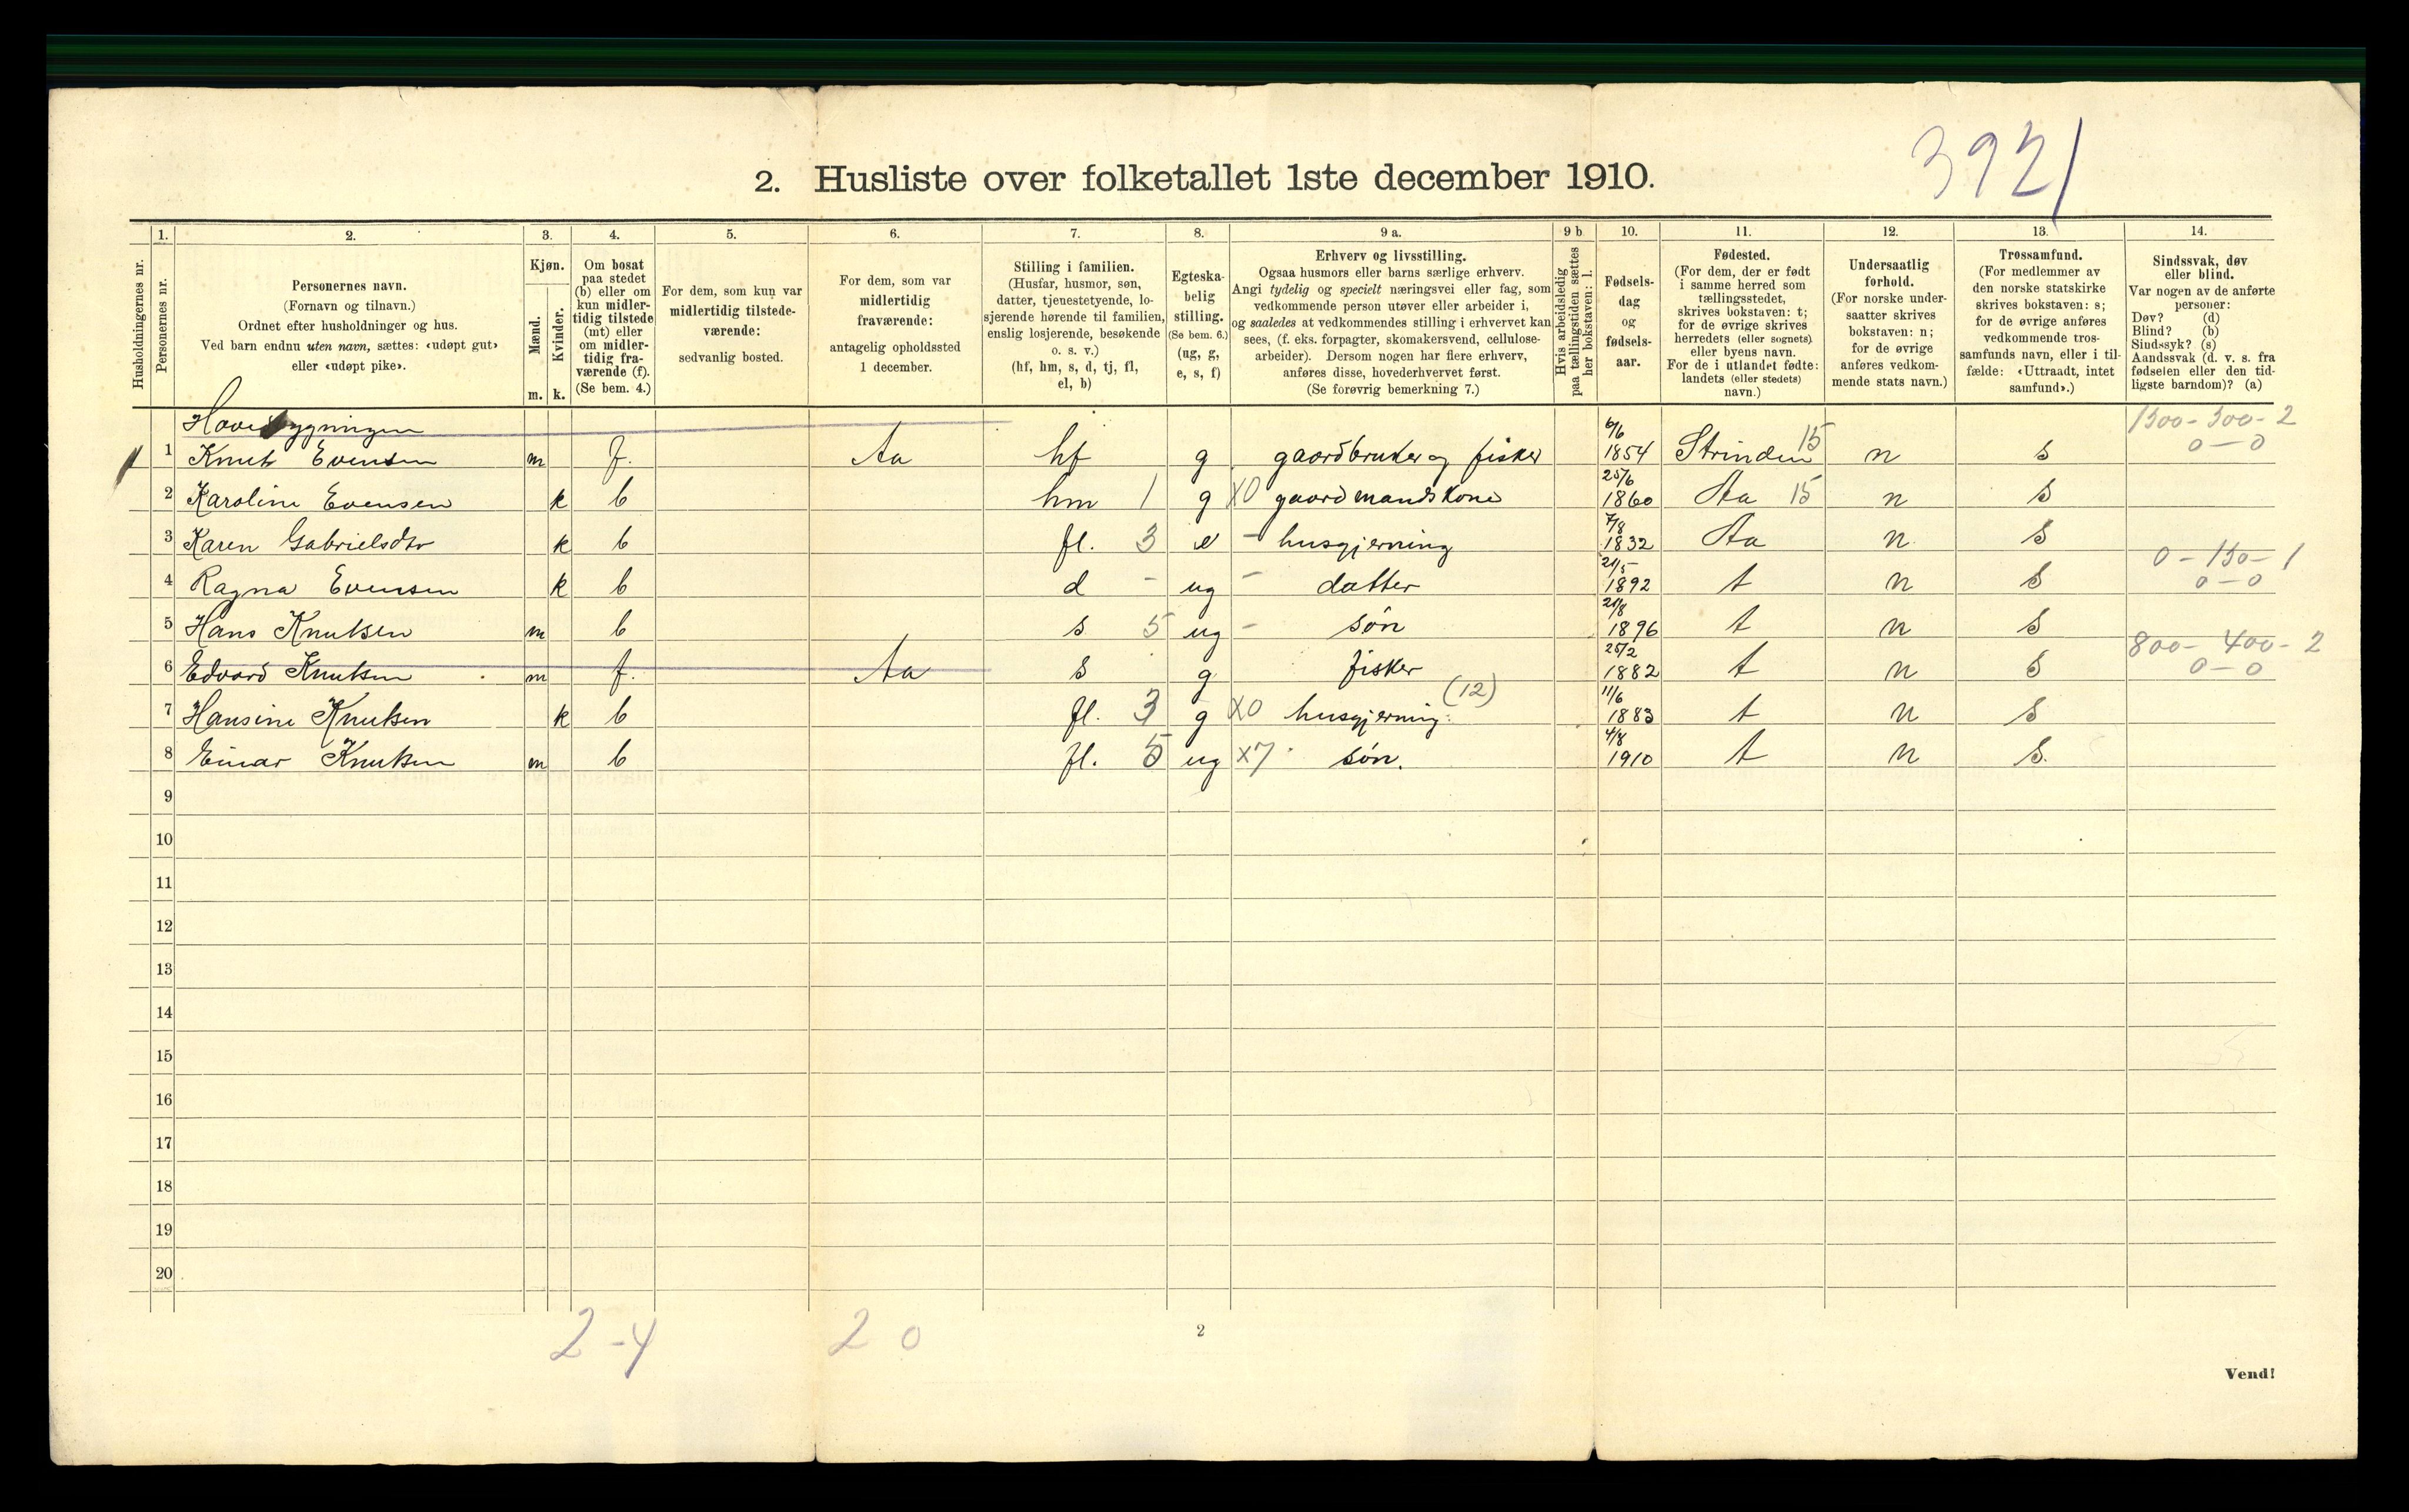 3921
2. Husliste over folketallet 1ste december 1910.
Husholdningernes nr.
1.
Personernes nr.
2.
Personernes navn.
(Fornavn og tilnavn.)
Ordnet efter husholdninger og hus.
Ved barn endnu uten navn, sættes: «udøpt gut»
eller «udøpt pike».
3.
Kjøn.
Mænd.
Kvinder.
m. k.
4.
Om bosat
paa stedet
(b) eller om
kun midler-
tidig tilstede
(mt) eller
om midler-
tidig fra-
værende (f).
(Se bem. 4.)
5.
For dem, som kun var
midlertidig tilstede-
værende:
sedvanlig bosted.
6.
For dem, som var
midlertidig
fraværende:
antagelig opholdssted
1 december.
7.
Stilling i familien.
(Husfar, husmor, søn,
datter, tjenestetyende, lo-
sjerende hørende til familien,
enslig losjerende, besøkende
o. s. v.)
(hf, hm, s, d, tj, fl,
el, b)
8.
Egteska-
belig
stilling.
(Se bem. 6.)
(ug, g,
e, s, f)
9 a.
Erhverv og livsstilling.
Ogsaa husmors eller barns særlige erhverv.
Angi tydelig og specielt næringsvei eller fag, som
vedkommende person utøver eller arbeider i,
og saaledes at vedkommendes stilling i erhvervet kan
sees, (f. eks. forpagter, skomakersvend, cellulose-
arbeider). Dersom nogen har flere erhverv,
anføres disse, hovederhvervet først.
(Se forøvrig bemerkning 7.)
9 b
Hvis arbeidsledig
paa tællingstiden sættes
her bokstaven: l.
10.
Fødsels-
dag
og
fødsels-
aar.
11.
Fødested.
(For dem, der er født
i samme herred som
tællingsstedet,
skrives bokstaven: t;
for de øvrige skrives
herredets (eller sognets)
eller byens navn.
For de i utlandet fødte:
landets (eller stedets)
navn.)
12.
Undersaatlig
forhold.
(For norske under-
saatter skrives
bokstaven: n;
for de øvrige
anføres vedkom-
mende stats navn.)
13.
Trossamfund.
(For medlemmer av
den norske statskirke
skrives bokstaven: s;
for de øvrige anføres
vedkommende tros-
samfunds navn, eller i til-
fælde: «Uttraadt, intet
samfund».)
14.
Sindssvak, døv
eller blind.
Var nogen av de anførte
personer:
Døv? (d)
Blind? (b)
Sindssyk? (s)
Aandssvak (d. v. s. fra
fødselen eller den tid-
ligste barndom)? (a)
Hovedbygningen 1500-300-2
1 Knut Evensen m f. Aa hf g gaardbruker og fisker 6/6 1854 Strinden 15 n s 0-0
2 Karoline Evensen k b hm 1 g X0 gaardmandskone 25/6 1860 Aa 15 n s
3 Karen Gabrielsdtr k b fl. 3 e - husgjerning 7/8 1832 Aa n s
4 Ragna Evensen k b d - ug - datter 21/5 1892 t n s 0-150-1 0-0
5 Hans Knutsen m b s 5 ug - søn 20/8 1896 t n s
6 Edvard Knutsen m f. Aa s g fisker 25/2 1882 t n s 800-400-2 0-0
7 Hansine Knutsen k b fl. 3 g X0 husgjerning. (12) 11/6 1883 t n s
8 Einar Knutsen m b fl. 5 ug X7 søn. 4/8 1910 t n s.
9
10
11
12
13
14
15
16
17
18
19
20
2-4 2 0
2
Vend!